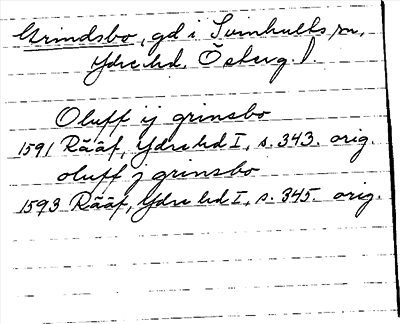 Grindsbo, gd i Svinhults sn,
Ydre hd, Österg. l.
Oluff ij grinsbo
1591 Rääf, Ydre hd I, s. 343. orig.
oluff j grinsbo
1593 Rääf, Ydre hd I, s. 345. orig.